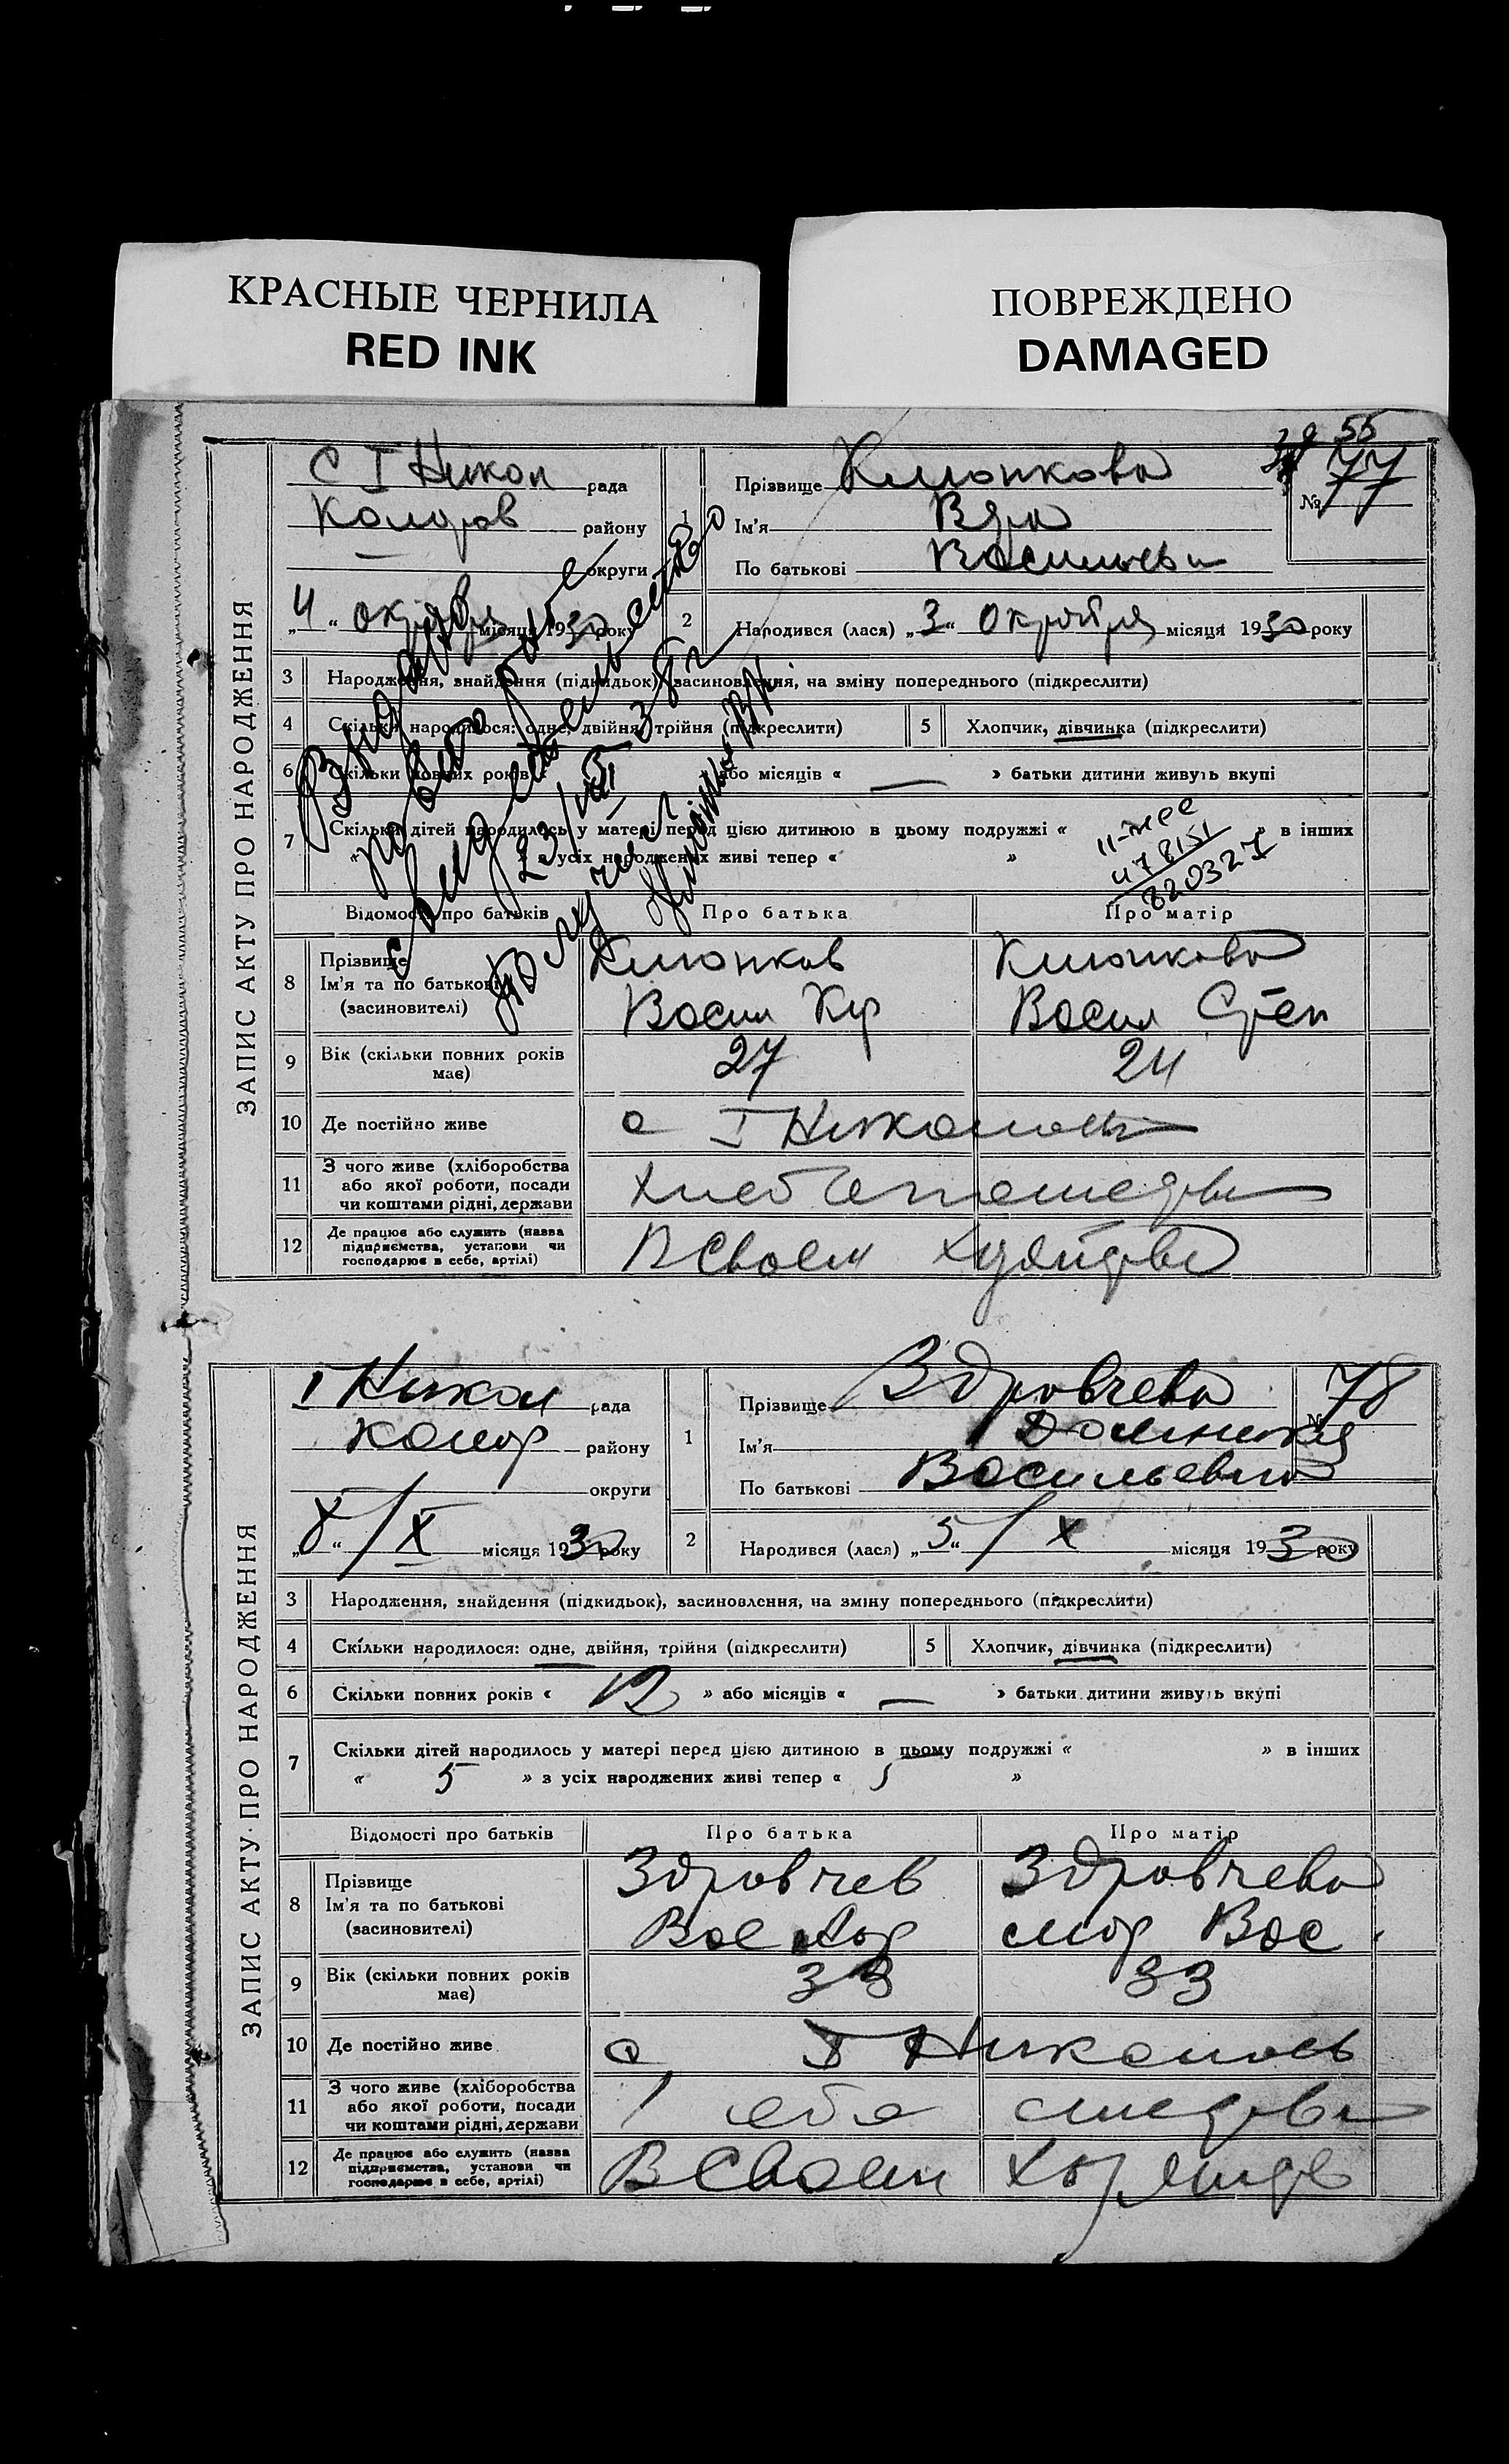 КРАСНЫЕ ЧЕРНИЛА
RED INK
ПОВРЕЖДЕНО
DAMAGED
55
ЗАПИС АКТУ ПРО НАРОДЖЕННЯ
С I Никол рада
району
округи
„4“ октября місяця 1930 року
1
Прізвище
Ім'я Вера
По батькові Васильевн
№ 77
2
Народився (лася) „3“ Октября місяця 1930 року
3 Народження, знайдення (підкидьок), засиновлення, на зміну попереднього (підкреслити)
4 Скільки народилося: одне, двійня, трійня (підкреслити)
5 Хлопчик, дівчинка (підкреслити)
6 Скільки повних років « » або місяців « — » батьки дитини живуть вкупі
7 Скільки дітей народилось у матері перед цією дитиною в цьому подружжі « » в інших
« » з усіх народжених живі тепер « »
Выдано
повторное
свидетельство
23/VIII 38 г
получил
478151
820327
Відомості про батьків
Про батька
Про матір
8 Прізвище
Ім'я та по батькові
(засновителі)
Васил
Васил Степ
9 Вік (скільки повних років має)
27
24
10 Де постійно живе
с I Николаевк
11 З чого живе (хліборобства або якої роботи, посади чи коштами рідні, держави
12 Де працює або служить (назва підприємства, установи чи господарює в себе, артілі)
В своем
ЗАПИС АКТУ ПРО НАРОДЖЕННЯ
I Никол рада
району
округи
„8“ / X місяця 1930 року
1
Прізвище Здровчева
Ім'я Домникия
По батькові Васильевна
№ 78
2
Народився (лася) „5“ / X місяця 1930 року
3 Народження, знайдення (підкидьок), засиновлення, на зміну попереднього (підкреслити)
4 Скільки народилося: одне, двійня, трійня (підкреслити)
5 Хлопчик, дівчинка (підкреслити)
6 Скільки повних років « 12 » або місяців « — » батьки дитини живуть вкупі
7 Скільки дітей народилось у матері перед цією дитиною в цьому подружжі « » в інших
« 5 » з усіх народжених живі тепер « 5 »
Відомості про батьків
Про батька
Про матір
8 Прізвище
Ім'я та по батькові
(засиновителі)
Здровчев
Здровчева
Вас
Вас
9 Вік (скільки повних років має)
33
10 Де постійно живе
11 З чого живе (хліборобства або якої роботи, посади чи коштами рідні, держави
12 Де працює або служить (назва підприємства, установи чи господарює в себе, артілі)
В своем